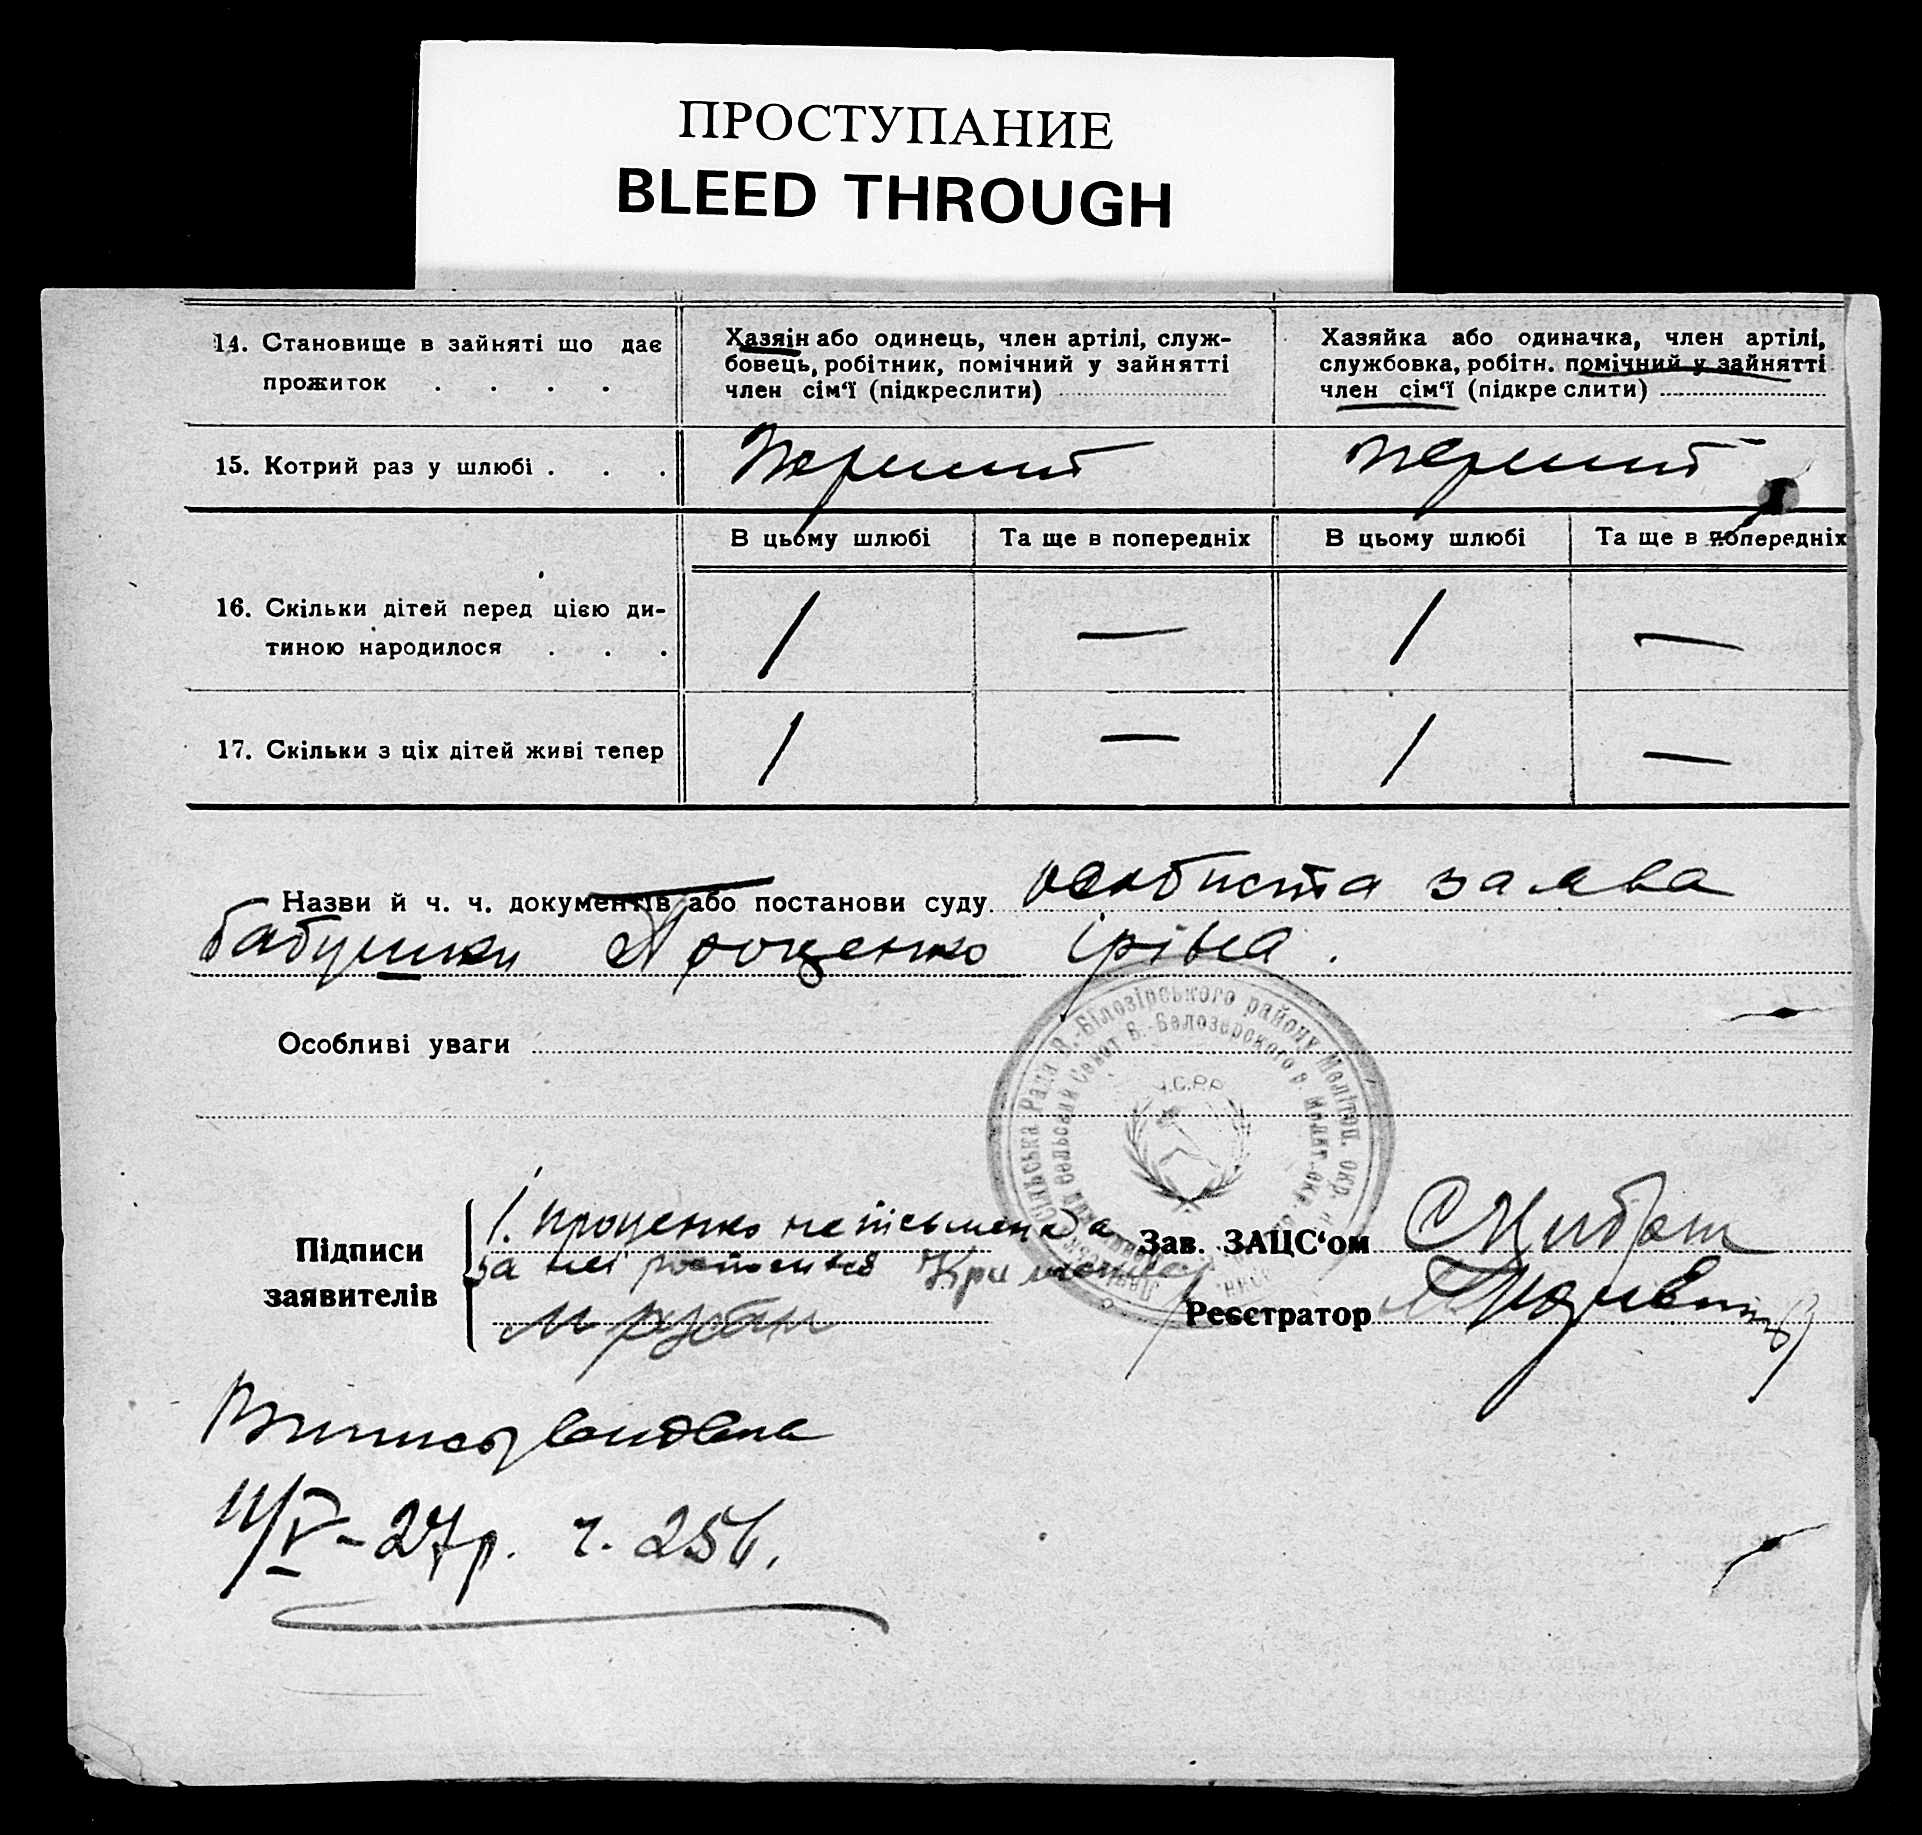 ПРОСТУПАНИЕ
BLEED THROUGH
14. Становище в зайняті що дає
прожиток . . . .
Хазяін або одинець, член артілі, служ-
бовець, робітник, помічний у зайнятті
член сім‘ї (підкреслити)
Хазяйка або одиначка, член артілі,
службовка, робітн. помічний у зайнятті
член сім‘ї (підкре слити)
15. Котрий раз у шлюбі . . .
Перший
перший
В цьому шлюбі
Та ще в попередніх
В цьому шлюбі
Та ще в попередніх
16. Скільки дітей перед цією ди-
тиною народилося . . .
1 — 1 —
17. Скільки з ціх дітей живі тепер
1 — 1 —
Назви й ч. ч. документів або постанови суду особиста заява
бабушки Проценко Іріна.
Особливі уваги
Сільська Рада В.-Білозірського району Мелітоп. окр.
Сельский Совет В.-Белозерского р. Мелит. окр.
У.С.Р.Р.
Підписи
заявителів
І. Проценко неписьменна а
за неї
Зав. ЗАЦС‘ом
Реєстратор
11/V – 27р. ч. 256.